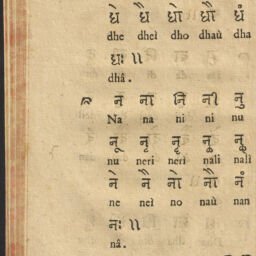 धे धै धो धौ धं
dhe dheì dho dhaù dha
धः ॥
dhâ.
न ना नि नी नु
Na na ni ni nu
नू नृ नॄ नॢ नॣ
nu neri nerì nali nalì
ने नै नो नौ नं
ne neì no naù nan
नः ॥
nâ.